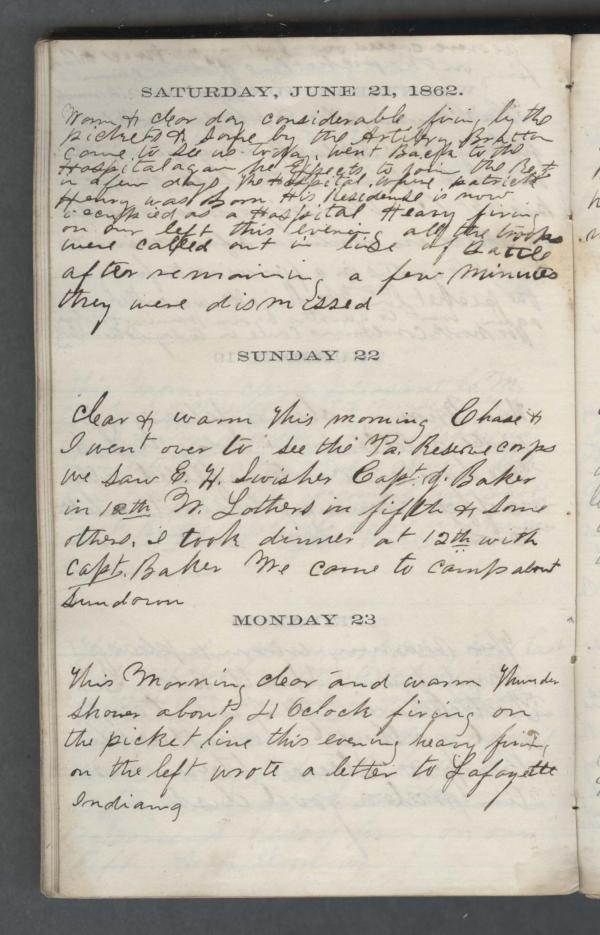 SATURDAY, JUNE 21, 1862.
Warm & clear day considerable firing by the
pickets & some by the Artilery Bratton
came to see us today. went Back to the
Hospital again he Expects to join the Regt
in a few days, the Hospital where patrick
Henry was Born His Residence is now
occupied as a Hospital Heavy firing
on our left this evening all the troops
were called out in line of Battle
after remaining a few minutes
they were dismissed
SUNDAY 22
Clear & warm this morning Chase &
I went over to see the Pa. Reserve corps
we saw E. H. Swisher Capt. J. Baker
in 12th W. Lothers in fifth & some
others. I took dinner at 12th with
Capt. Baker We came to camp about
Sundown
MONDAY 23
This Morning clear and warm Thunder
Shower about 4 Oclock firing on
the picket line this evening heavy firing
on the left wrote a letter to Lafayette
Indiana